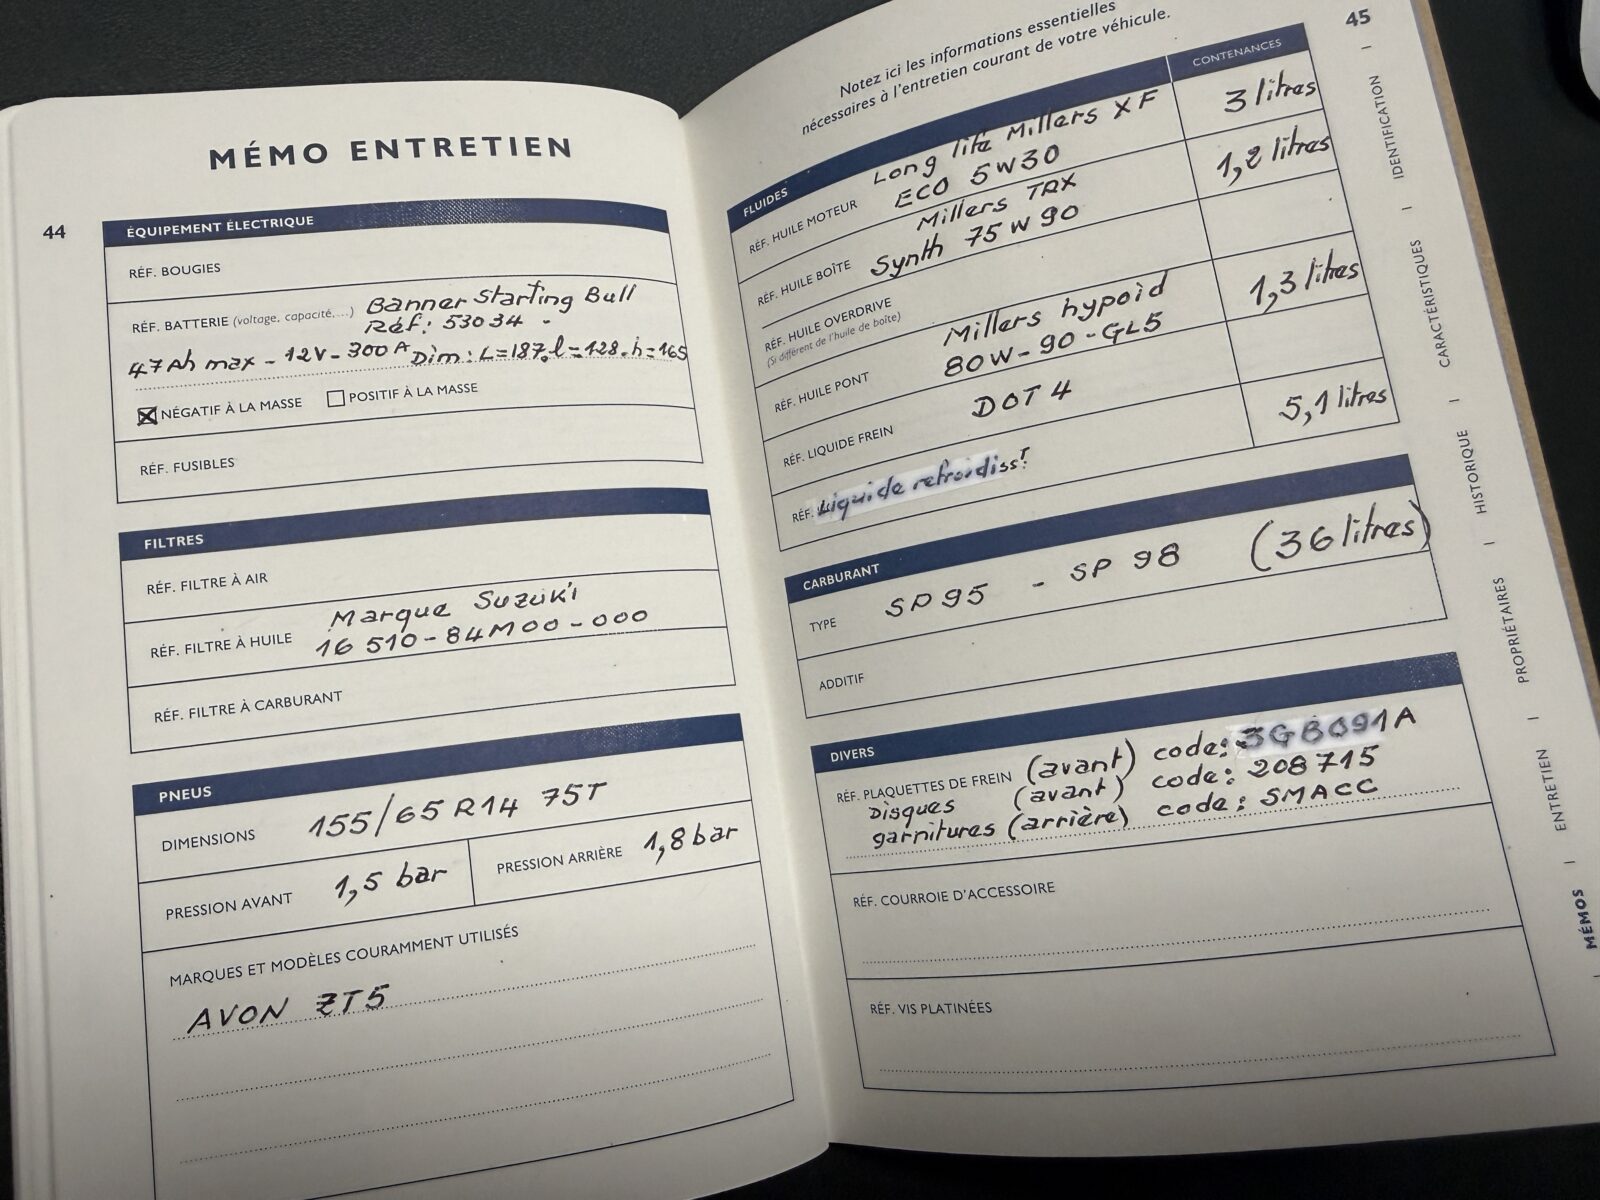 44
MÉMO ENTRETIEN
ÉQUIPEMENT ÉLECTRIQUE
RÉF. BOUGIES
RÉF. BATTERIE (voltage, capacité,...) Banner Starting Bull
Réf: 53034 -
47Ah max - 12V - 300A Dim: L=187. l=128. h=165
NÉGATIF À LA MASSE POSITIF À LA MASSE
RÉF. FUSIBLES
FILTRES
RÉF. FILTRE À AIR
Marque Suzuki
RÉF. FILTRE À HUILE 16 510-84M00-000
RÉF. FILTRE À CARBURANT
PNEUS
DIMENSIONS 155/65 R14 75T
PRESSION AVANT 1,5 bar PRESSION ARRIÈRE 1,8 bar
MARQUES ET MODÈLES COURAMMENT UTILISÉS
AVON ZT5
45
Notez ici les informations essentielles
nécessaires à l'entretien courant de votre véhicule.
FLUIDES CONTENANCES
Long life Millers XF 3 litres
RÉF. HUILE MOTEUR ECO 5W30
Millers TRX 1,2 litres
RÉF. HUILE BOÎTE Synth 75W90
RÉF. HUILE OVERDRIVE
(Si différent de l'huile de boîte)
Millers hypoïd 1,3 litres
RÉF. HUILE PONT 80W-90-GL5
RÉF. LIQUIDE FREIN DOT 4
RÉF. Liquide refroidisst. 5,1 litres
CARBURANT
TYPE SP95 - SP 98 (36 litres)
ADDITIF
DIVERS
RÉF. PLAQUETTES DE FREIN (avant) code: 3GB091A
Disques (avant) code: 208715
garnitures (arrière) code: SMACC
RÉF. COURROIE D'ACCESSOIRE
RÉF. VIS PLATINÉES
IDENTIFICATION | CARACTÉRISTIQUES | HISTORIQUE | PROPRIÉTAIRES | ENTRETIEN | MÉMOS